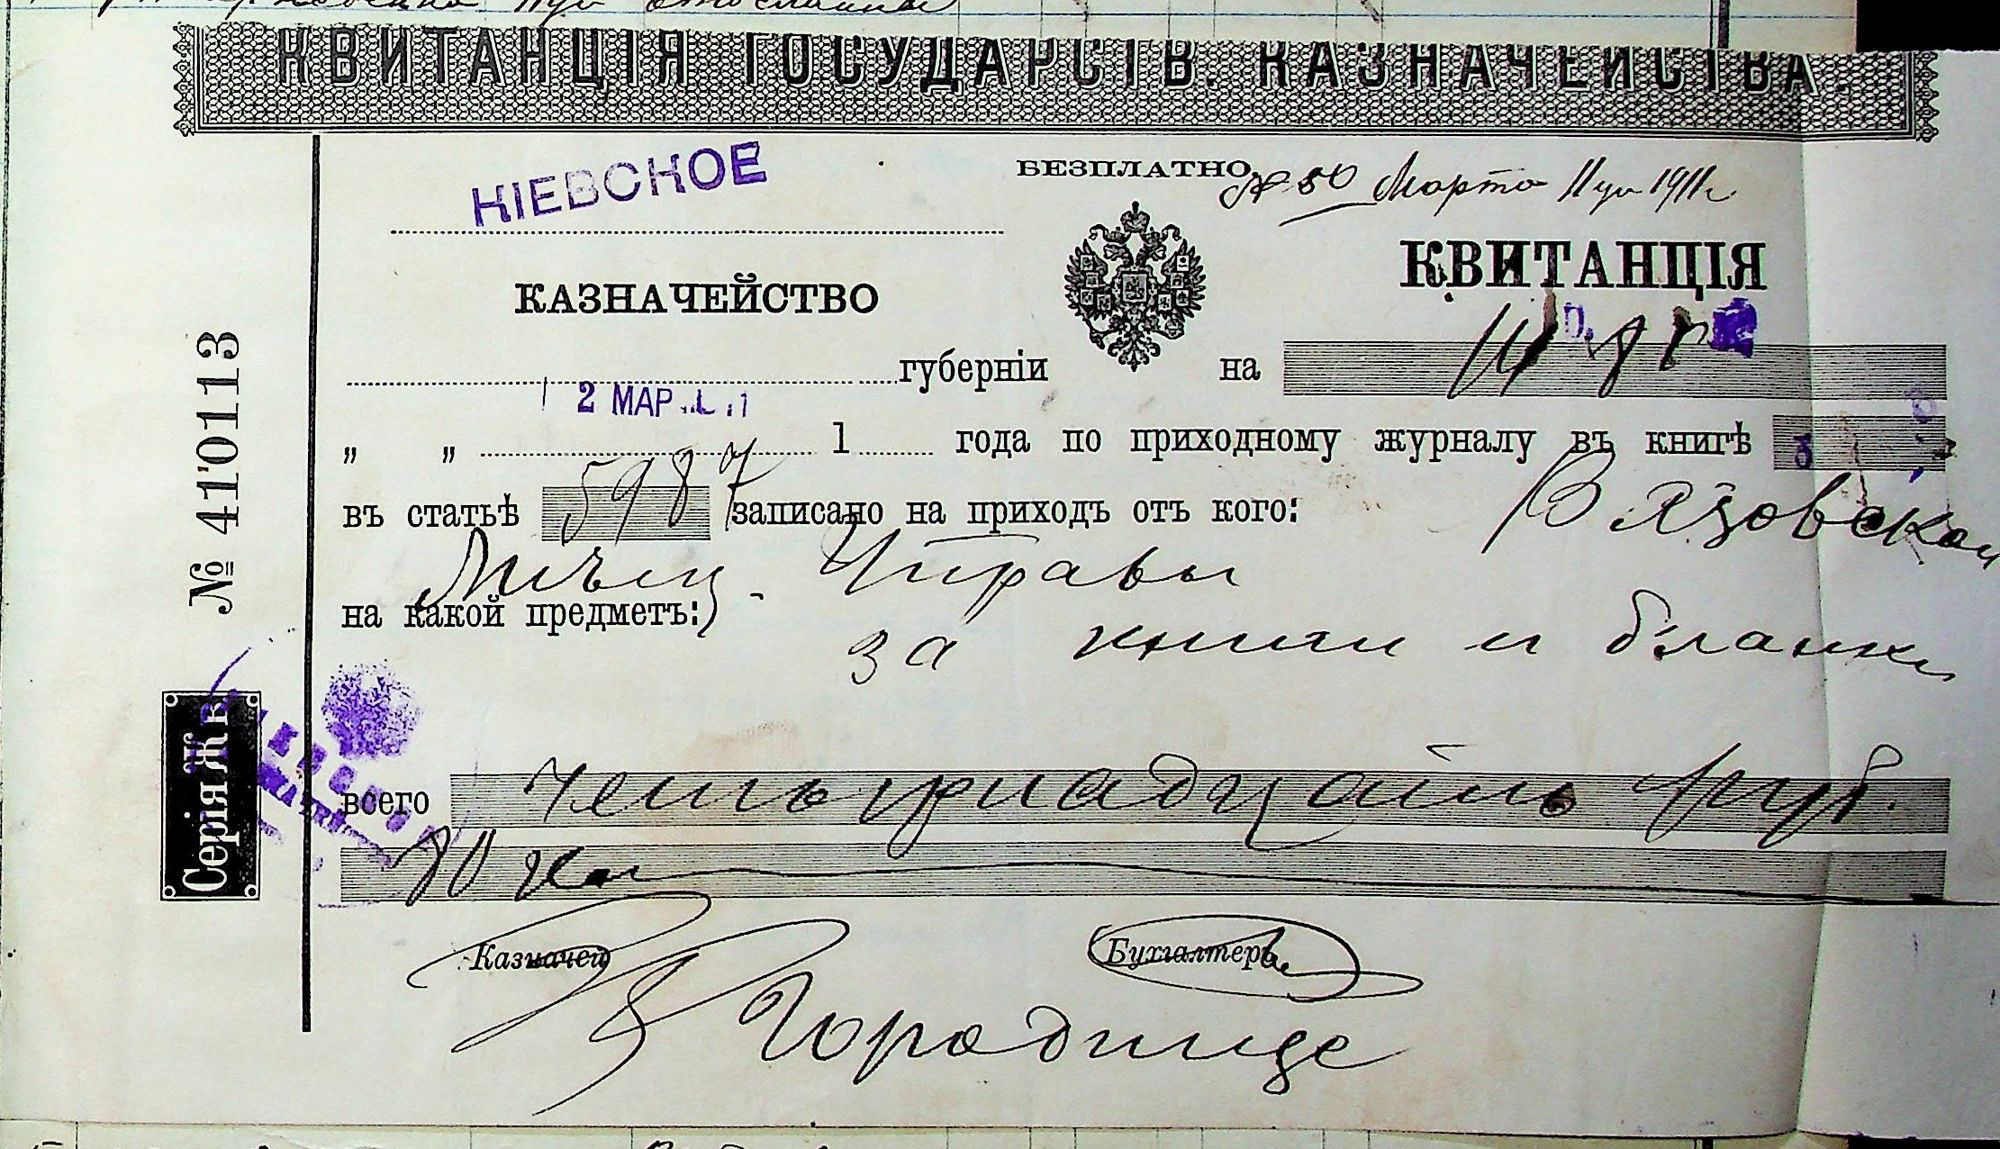 КВИТАНЦІЯ ГОСУДАРСТВ. КАЗНАЧЕЙСТВА.
КІЕВСКОЕ
БЕЗПЛАТНО
№ 50 Марта 11 дн 1911 г
КАЗНАЧЕЙСТВО
КВИТАНЦІЯ
губерніи
на 14 р. 80 к
2 МАР
„ „ 1 года по приходному журналу въ книгѣ
въ статьѣ 5987 записано на приходъ отъ кого: Вязовской
Мѣщ. Управы
на какой предметъ:
за книги и бланки
всего четырнадцать руб.
80 коп
Казначей
Бухгалтеръ
Городище
№ 410113
Серія Жв